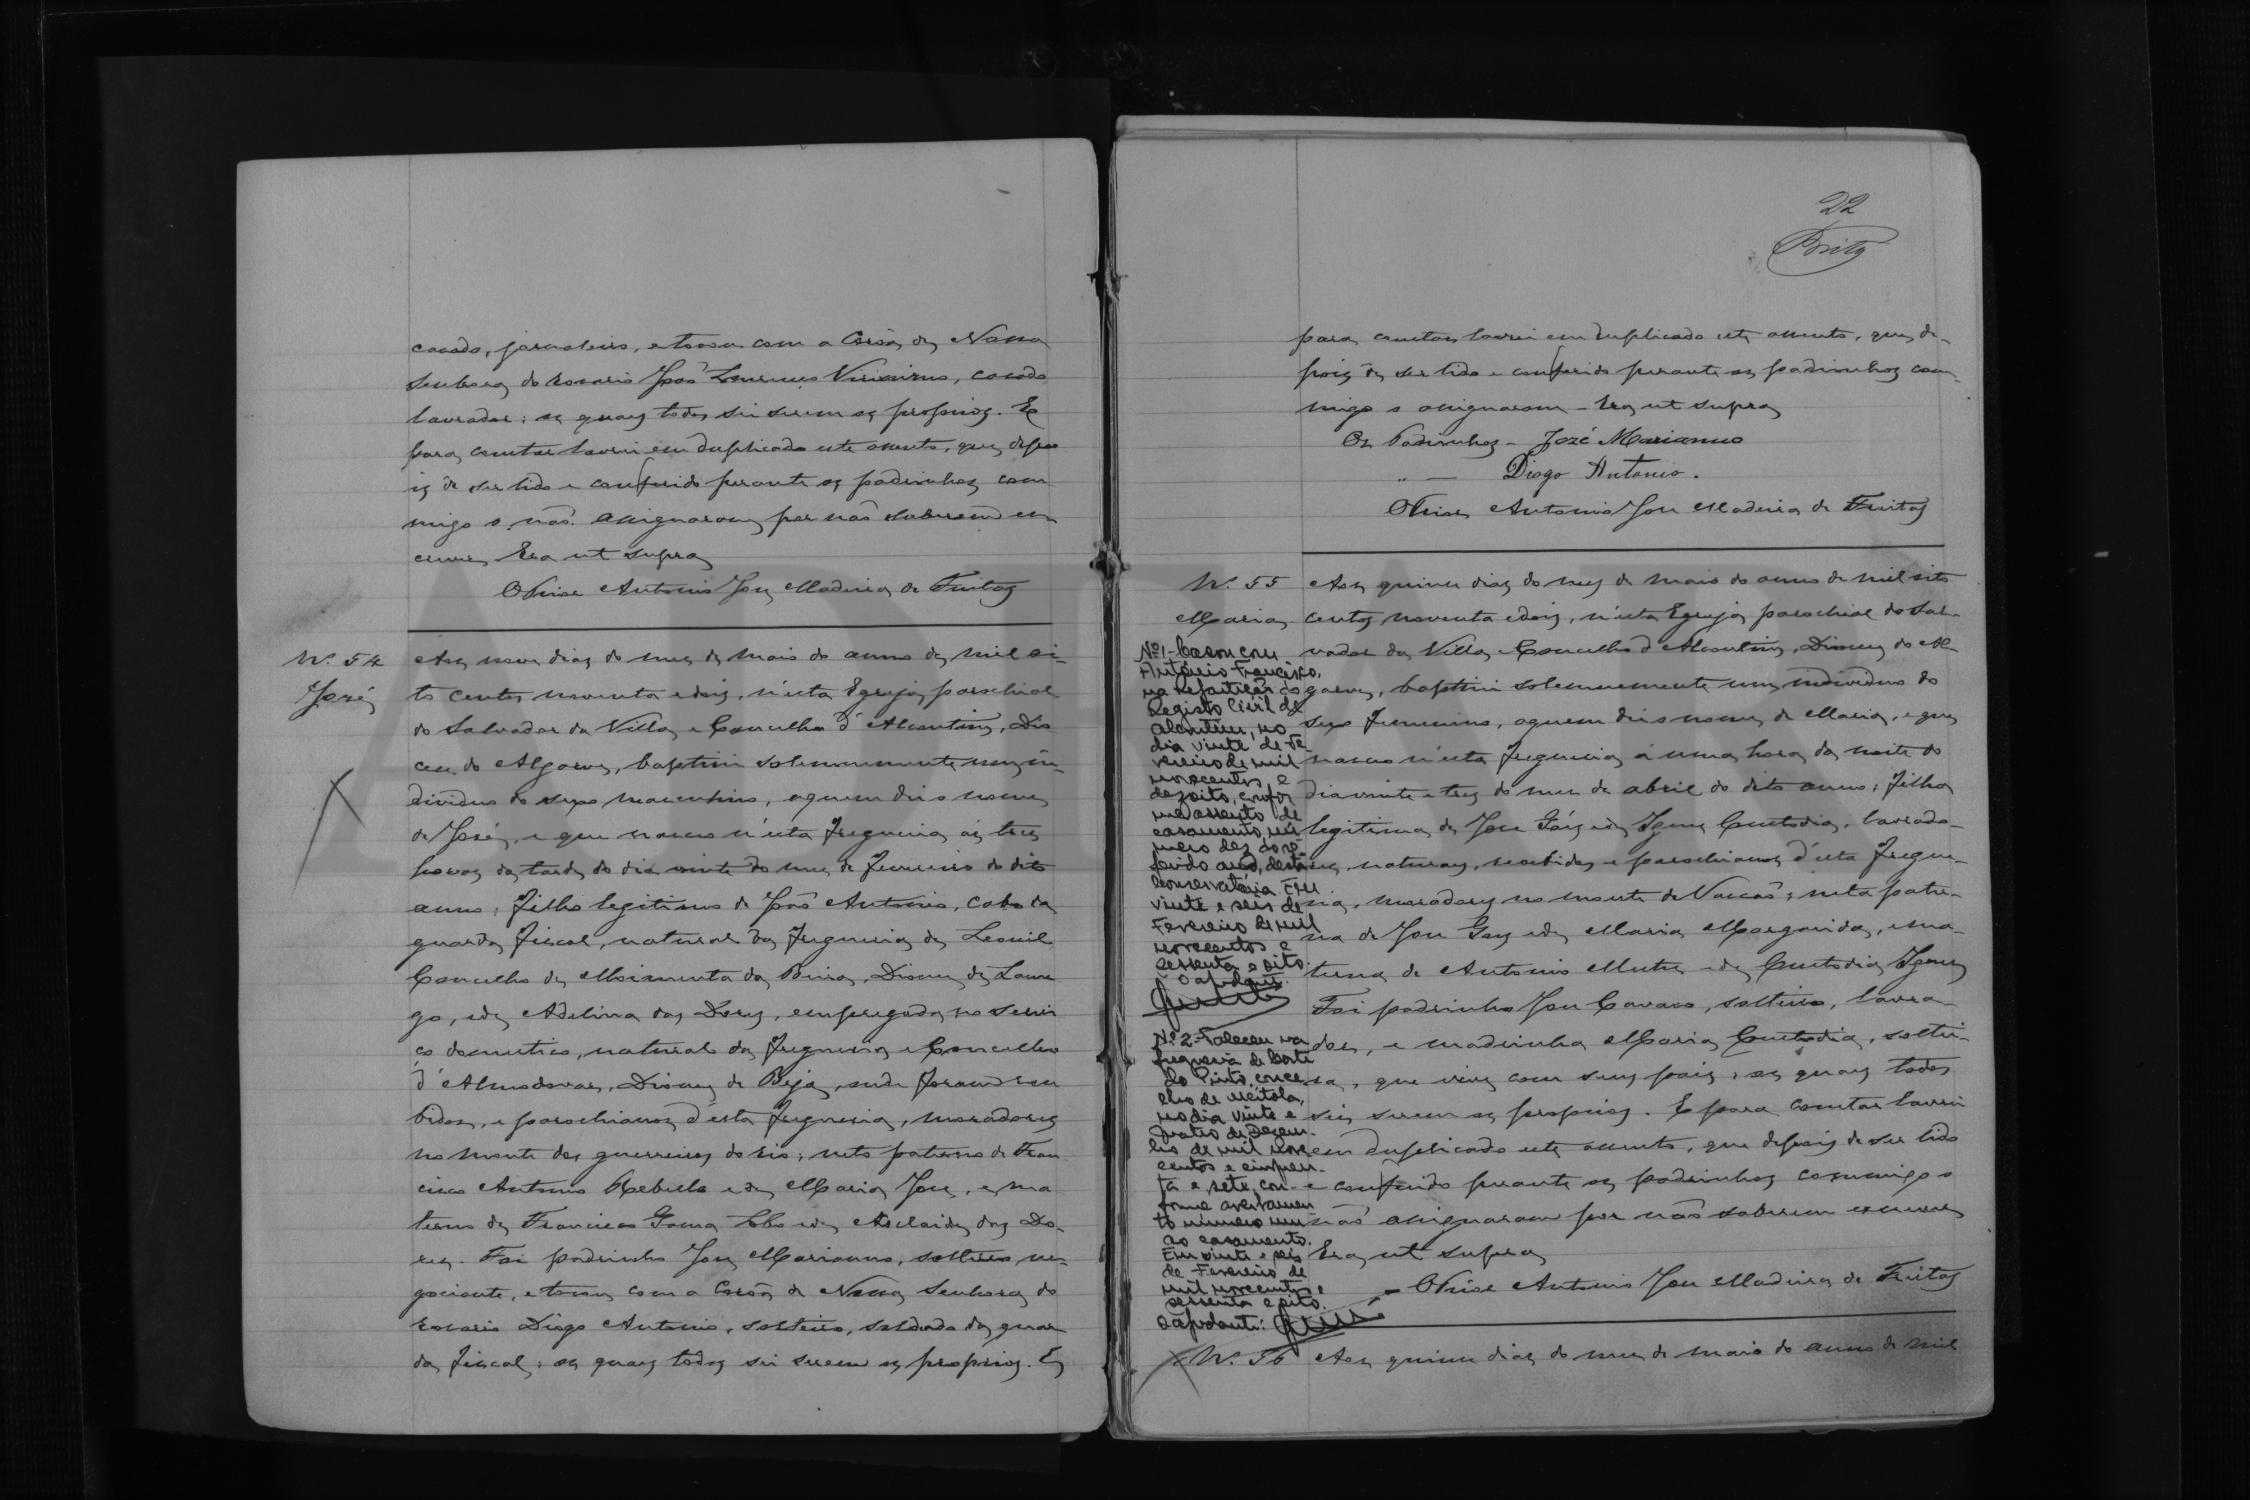 casado, jornaleiro, e tocou com a Corôa de Nossa
Senhora do Rosario João Lourenço Virissimo, casado
lavrador; os quaes todos sei serem os proprios. E
para constar lavrei em duplicado este assento, que depo
is de ser lido e conferido perante os padrinhos com
migo o não assignaram por não saberem es
crever Era ut supra
O Prior Antonio José Madeira de Freitas
N.º 54
José
Aos nove dias do mez de Maio do anno de mil oi-
to centos noventa e dois, n'esta Egreja parochial
do Salvador da Villa e Concelho d'Alcoutim, Dio
cese do Algarve, baptisei solemnemente um in-
dividuo do sexo masculino, a quem dei o nome
de José, e que nasceu n'esta freguesia ás tres
horas da tarde do dia vinte do mez de Fevereiro do dito
anno; filho legitimo de João Antonio, cabo da
guarda fiscal, natural da freguesia de Leomil
Concelho de Moimenta da Beira, Diocese de Lame
go, e de Adelina das Dores, empregada no servi
ço domestico, natural da freguesia e Concelho
d'Almodovar, Diocese de Beja, onde foram rece
bidos, e parochianos d'esta freguesia, moradores
no monte dos guerreiros do rio; neto paterno de Fran
cisco Antonio Rebello e de Maria José, e ma
terno de Francisco Gomes Lobo e de Adelaide das Do
res. Foi padrinho José Marianno, solteiro, ne-
gociante, e tocou com a Corôa de Nossa Senhora do
rosario Diogo Antonio, solteiro, soldado da guar
da fiscal; os quaes todos sei serem os proprios. E
22
Freitas
para constar lavrei em duplicado este assento, que de-
pois de ser lido e conferido perante os padrinhos com-
migo o assignaram - Era ut supra
Os Padrinhos - José Marianno
" — Diogo Antonio.
O Prior Antonio José Madeira de Freitas
N.º 55
Maria
Aos quinze dias do mez de Maio do anno de mil oito
centos noventa e dois, n'esta Egreja parochial do Sal-
vador da Villa e Concelho d'Alcoutim, Diocese do Al-
garve, baptisei solemnemente um individuo do
sexo femenino, a quem dei o nome de Maria, e que
nasceu n'esta freguesia á uma hora da noite do
dia vinte e tres do mez de abril do dito anno; filha
legitima de José e de Ignez Custodia, lavrado-
res, naturaes, recebidos e parochianos d'esta fregue-
sia, moradores no monte do Vascão; neta pater-
na de José e de Maria Margarida, e ma-
terna de Antonio Mestre e de Custodia Ignez
Foi padrinho José Cavaco, solteiro, lavra-
dor, e madrinha Maria Custodia, soltei-
ra, que vive com seus pais; os quaes todos
sei serem os proprios. E para constar lavrei
em duplicado este assento, que depois de ser lido
e conferido perante os padrinhos commigo o
não assignaram por não saberem escrever
Era ut supra
- O Prior Antonio José Madeira de Freitas
Nº1-Casou com
António Francisco,
na Repartição do
Registo Civil de
Alcoutim, no
dia vinte de Fe-
vereiro de mil
novecentos e
dezoito, confor
me assento de
casamento nú
mero dez do re-
ferido ano, desta
Conservatória. Em
vinte e seis de
Fevereiro de mil
novecentos e
sessenta e oito.
O ajudante.
Nº2-Faleceu na
freguesia de Corte
do Pinto, conce
lho de Mértola,
no dia vinte e
quatro de Dezem-
bro de mil nove
centos e cinquen-
ta e sete, con-
forme averbamen
to número um
ao casamento.
Em vinte e seis
de Fevereiro de
mil novecentos e
sessenta e oito.
O ajudante:
N.º 56 Aos quinze dias do mez de Maio do anno de mil